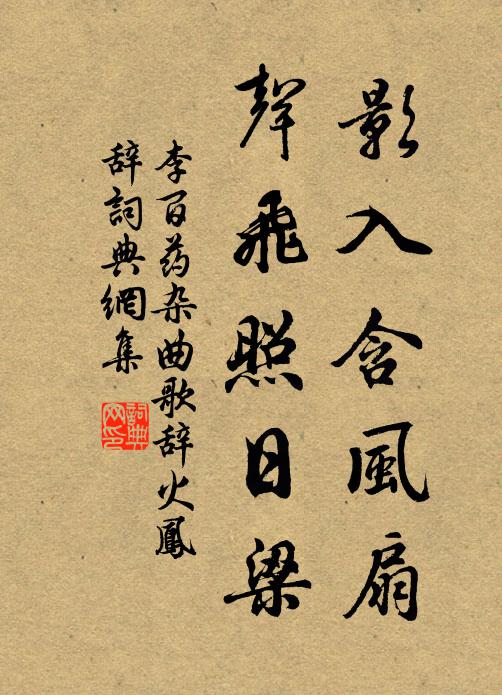 影入含風扇
聲飛照日梁
李百药杂曲歌辞火鳳
辞詞典網集
詞典网印